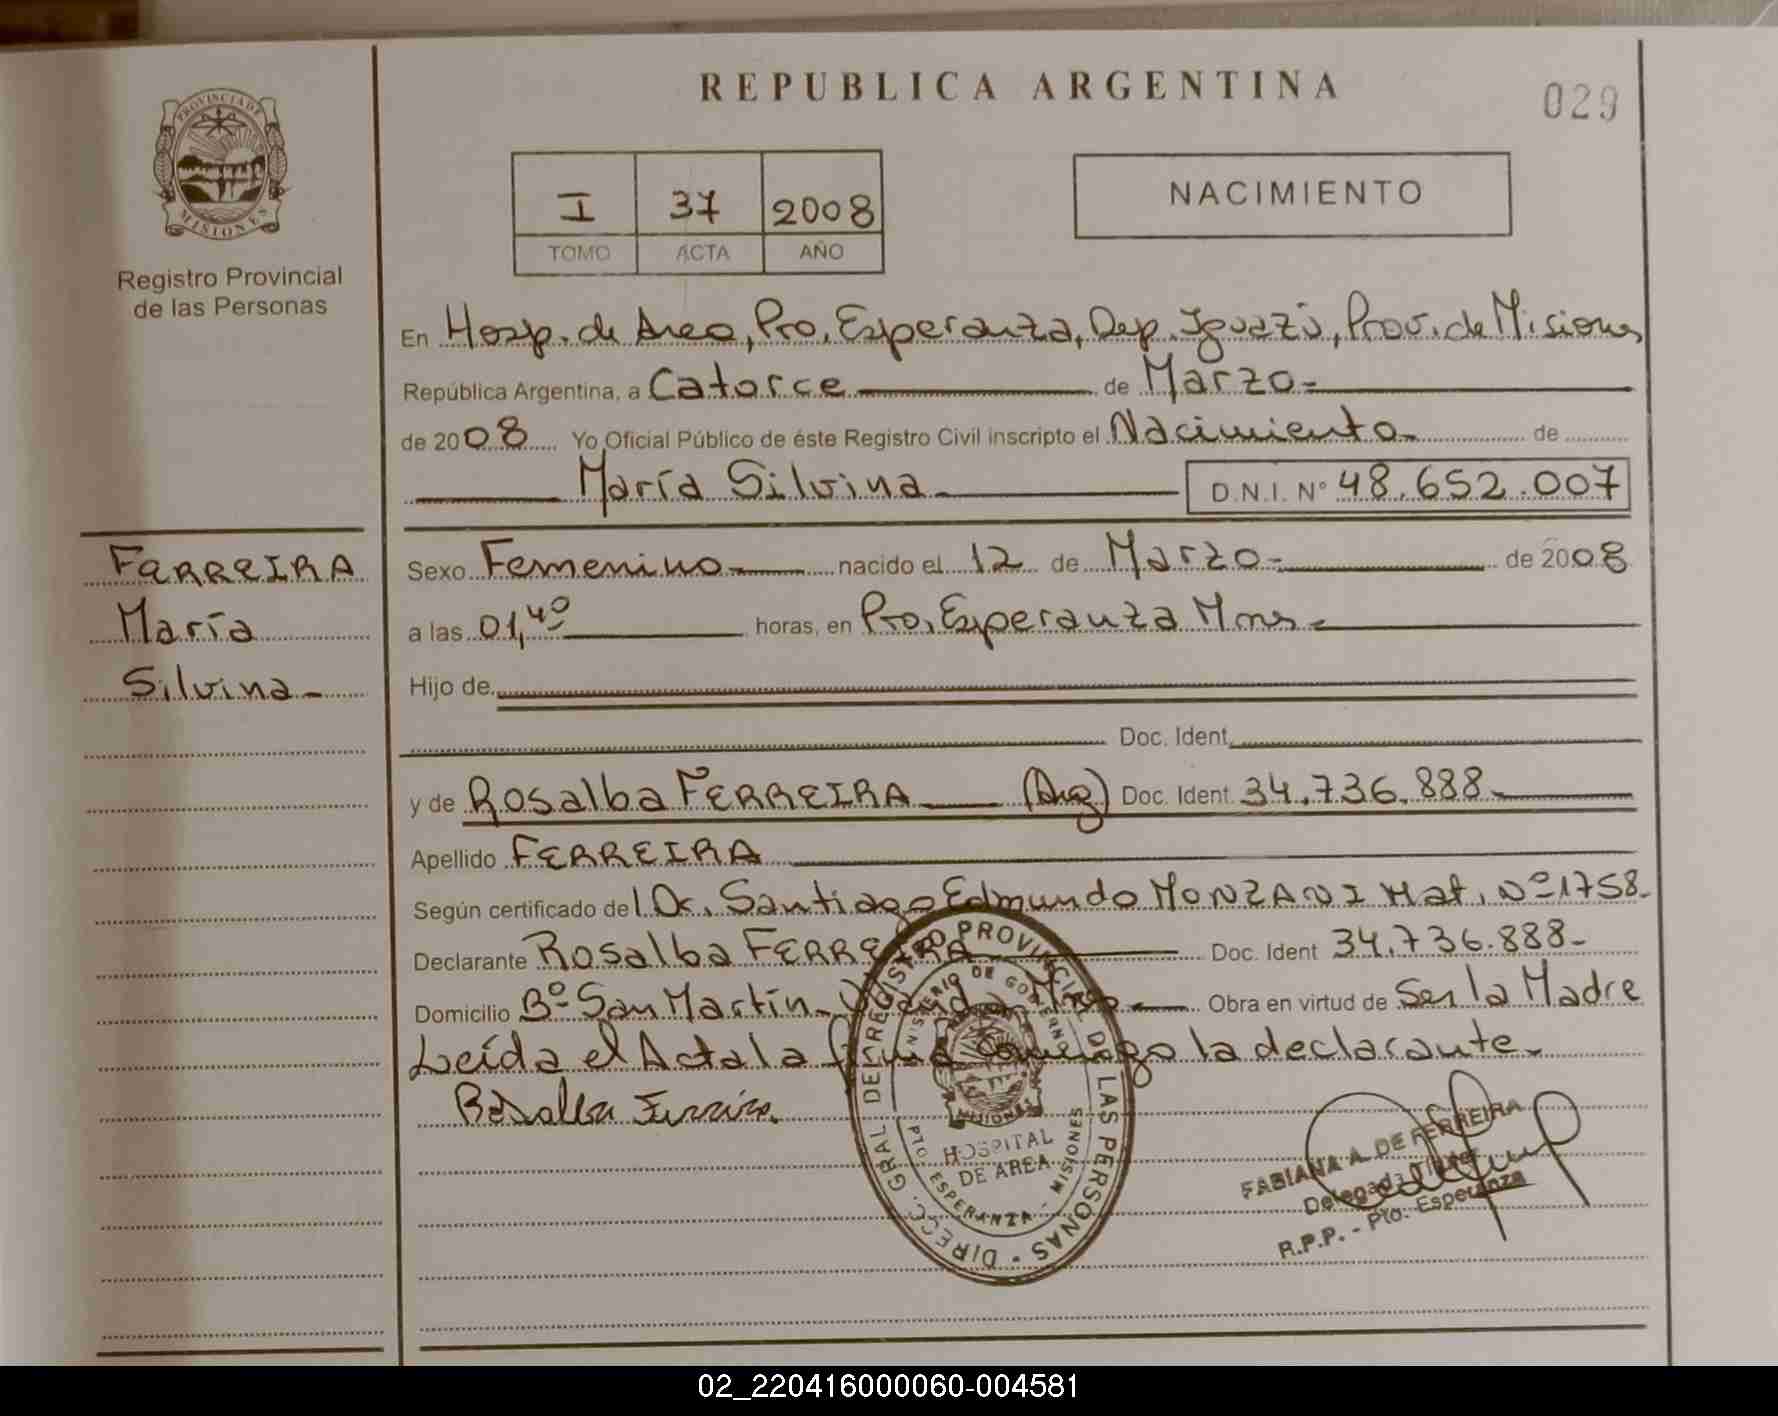 REPUBLICA ARGENTINA
029
PROVINCIA DE
MISIONES
Registro Provincial
de las Personas
I 37 2008
TOMO ACTA AÑO
NACIMIENTO
En Hosp. de Area, Pto. Esperanza, Dep. Iguazú, Prov. de Misiones
República Argentina, a Catorce de Marzo
de 2008 Yo Oficial Público de éste Registro Civil inscripto el Nacimiento de
María Silvina D.N.I. N° 48.652.007
FERREIRA
María
Silvina
Sexo Femenino nacido el 12 de Marzo de 2008
a las 01,40 horas, en Pto. Esperanza Mnes
Hijo de
Doc. Ident.
y de Rosalba FERREIRA (Arg) Doc. Ident. 34.736.888
Apellido FERREIRA
Según certificado del Dr. Santiago Edmundo MONZANI Mat. Nº 1758
Declarante Rosalba FERREIRA Doc. Ident 34.736.888
Domicilio Bº San Martín Obra en virtud de Ser la Madre
Leída el Acta la firma conmigo la declarante
Rosalba Ferreira
DIREC. GRAL DEL REGISTRO PROVINCIAL DE LAS PERSONAS
MINISTERIO DE GOBIERNO
MISIONES
HOSPITAL
DE AREA
PTO ESPERANZA - MISIONES
FABIANA A. DE FERREIRA
Delegada Titular
R.P.P. - Pto. Esperanza
02_220416000060-004581